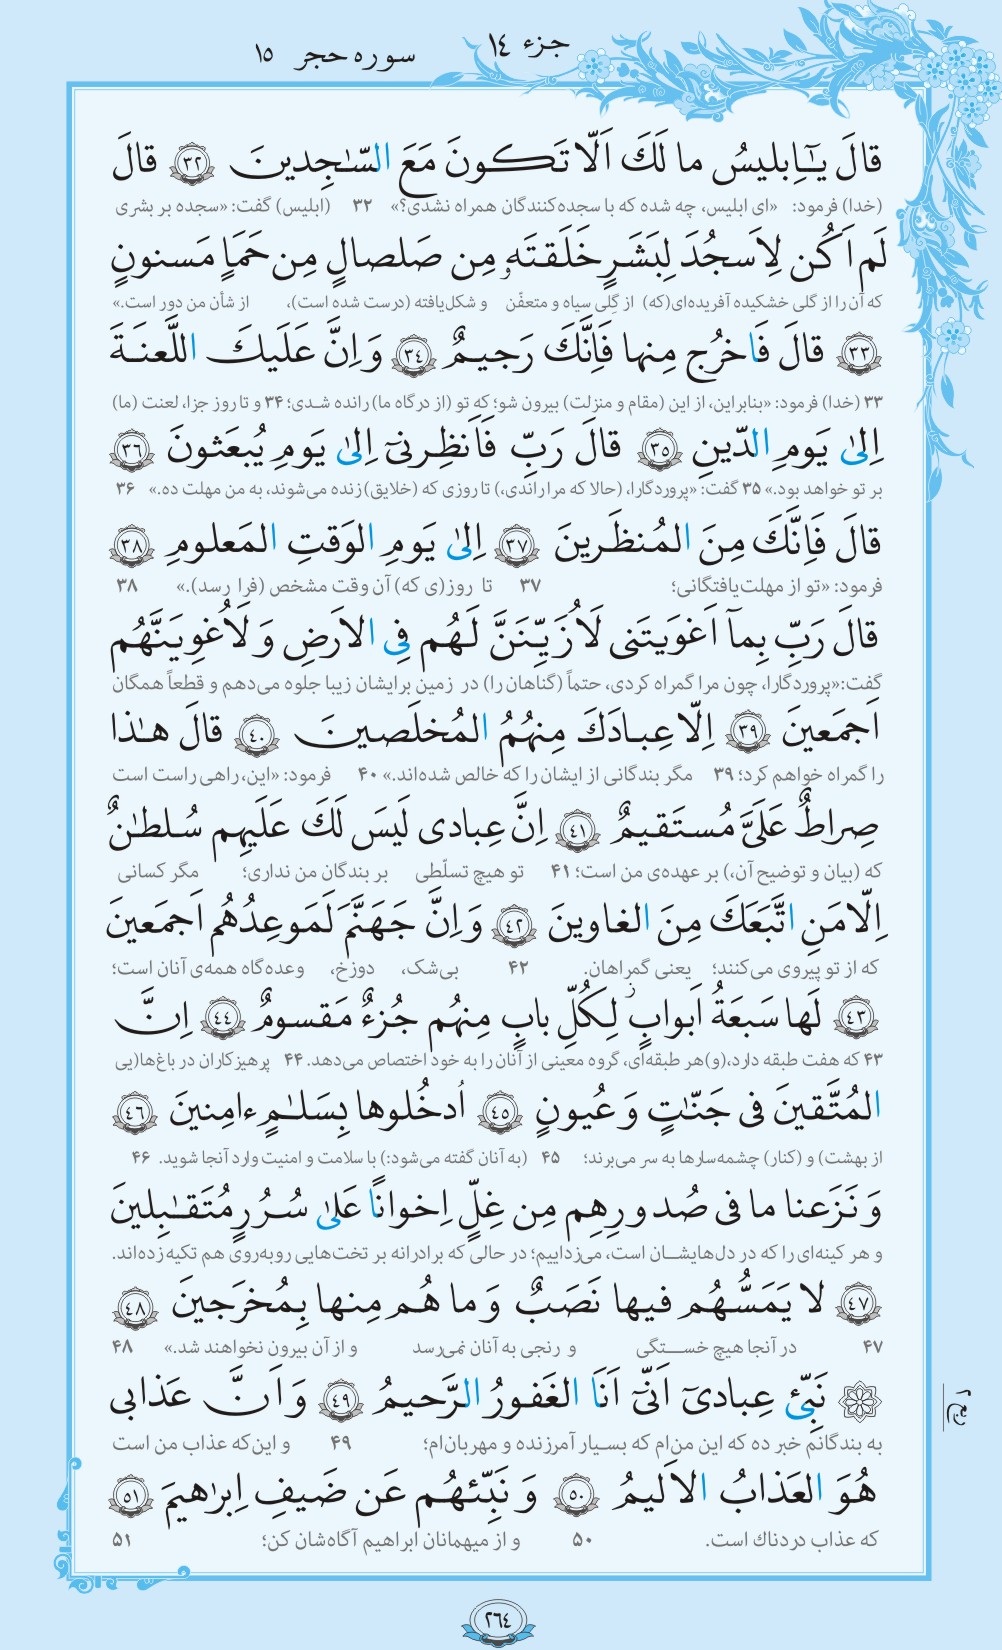 جزء ١٤
سوره حجر ١٥
قالَ يـٰٓاِبليسُ ما لَكَ اَلّا تَكونَ مَعَ السّـٰجِدينَ ﴿٣٢﴾ قالَ
(خدا) فرمود: «ای ابلیس، چه شده که با سجده‌کنندگان همراه نشدی؟» ۳۲ (ابلیس) گفت: «سجده بر بشری
لَم اَكُن لِاَسجُدَ لِبَشَرٍ خَلَقتَهٗ مِن صَلصالٍ مِن حَمَاٍ مَسنونٍ
که آن را از گلی خشکیده آفریده‌ای(که) از گِلی سیاه و متعفّن و شکل‌یافته (درست شده است)، از شأن من دور است.»
﴿٣٣﴾ قالَ فَاخرُج مِنها فَاِنَّكَ رَجيمٌ ﴿٣٤﴾ وَ اِنَّ عَلَيكَ اللَّعنَةَ
۳۳ (خدا) فرمود: «بنابراین، از این (مقام و منزلت) بیرون شو؛ که تو (از درگاه ما) رانده شدی؛ ۳۴ و تا روز جزا، لعنت (ما)
اِلىٰ يَومِ الدّينِ ﴿٣٥﴾ قالَ رَبِّ فَاَنظِرنىٓ اِلىٰ يَومِ يُبعَثونَ ﴿٣٦﴾
بر تو خواهد بود.» ۳۵ گفت: «پروردگارا، (حالا که مرا راندی،) تا روزی که (خلایق) زنده می‌شوند، به من مهلت ده.» ۳۶
قالَ فَاِنَّكَ مِنَ المُنظَرينَ ﴿٣٧﴾ اِلىٰ يَومِ الوَقتِ المَعلومِ ﴿٣٨﴾
فرمود: «تو از مهلت‌یافتگانی؛ ۳۷ تا روز(ی که) آن وقت مشخص (فرا رسد).» ۳۸
قالَ رَبِّ بِمآ اَغوَيتَنى لَاُزَيِّنَنَّ لَهُم فِى الاَرضِ وَ لَاُغوِيَنَّهُم
گفت:«پروردگارا، چون مرا گمراه کردی، حتماً (گناهان را) در زمین برایشان زیبا جلوه می‌دهم و قطعاً همگان
اَجمَعينَ ﴿٣٩﴾ اِلّا عِبادَكَ مِنهُمُ المُخلَصينَ ﴿٤٠﴾ قالَ هـٰذا
را گمراه خواهم کرد؛ ۳۹ مگر بندگانی از ایشان را که خالص شده‌اند.» ۴۰ فرمود: «این، راهی راست است
صِراطٌ عَلَىَّ مُستَقيمٌ ﴿٤١﴾ اِنَّ عِبادى لَيسَ لَكَ عَلَيهِم سُلطـٰنٌ
که (بیان و توضیح آن،) بر عهده‌ی من است؛ ۴۱ تو هیچ تسلّطی بر بندگان من نداری؛ مگر کسانی
اِلّا مَنِ اتَّبَعَكَ مِنَ الغاوينَ ﴿٤٢﴾ وَ اِنَّ جَهَنَّمَ لَمَوعِدُهُم اَجمَعينَ
که از تو پیروی می‌کنند؛ یعنی گمراهان. ۴۲ بی‌شک، دوزخ، وعده‌گاه همه‌ی آنان است؛
﴿٤٣﴾ لَها سَبعَةُ اَبوابٍ ز لِكُلِّ بابٍ مِنهُم جُزءٌ مَقسومٌ ﴿٤٤﴾ اِنَّ
۴۳ که هفت طبقه دارد،(و)هر طبقه‌ای، گروه معینی از آنان را به خود اختصاص می‌دهد. ۴۴ پرهیزکاران در باغ‌ها(یی
المُتَّقينَ فى جَنّـٰتٍ وَ عُيونٍ ﴿٤٥﴾ اُدخُلوها بِسَلـٰمٍ ءامِنينَ ﴿٤٦﴾
از بهشت) و (کنار) چشمه‌سارها به سر می‌برند؛ ۴۵ (به آنان گفته می‌شود:) با سلامت و امنیت وارد آنجا شوید. ۴۶
وَ نَزَعنا ما فى صُدورِهِم مِن غِلٍّ اِخوانًا عَلىٰ سُرُرٍ مُتَقـٰبِلينَ
و هر کینه‌ای را که در دل‌هایشان است، می‌زداییم؛ در حالی که برادرانه بر تخت‌هایی روبه‌روی هم تکیه زده‌اند.
﴿٤٧﴾ لا يَمَسُّهُم فيها نَصَبٌ وَ ما هُم مِنها بِمُخرَجينَ ﴿٤٨﴾
۴۷ در آنجا هیچ خستگی و رنجی به آنان نمی‌رسد و از آن بیرون نخواهند شد.» ۴۸
نَبِّئ عِبادىٓ اَنّىٓ اَنَا الغَفورُ الرَّحيمُ ﴿٤٩﴾ وَ اَنَّ عَذابى
ربع ٢
به بندگانم خبر ده که این من‌ام که بسیار آمرزنده و مهربان‌ام؛ ۴۹ و این‌که عذاب من است
هُوَ العَذابُ الاَليمُ ﴿٥٠﴾ وَ نَبِّئهُم عَن ضَيفِ اِبرٰهيمَ ﴿٥١﴾
که عذاب دردناك است. ۵۰ و از میهمانان ابراهیم آگاه‌شان کن؛ ۵۱
٢٦٤